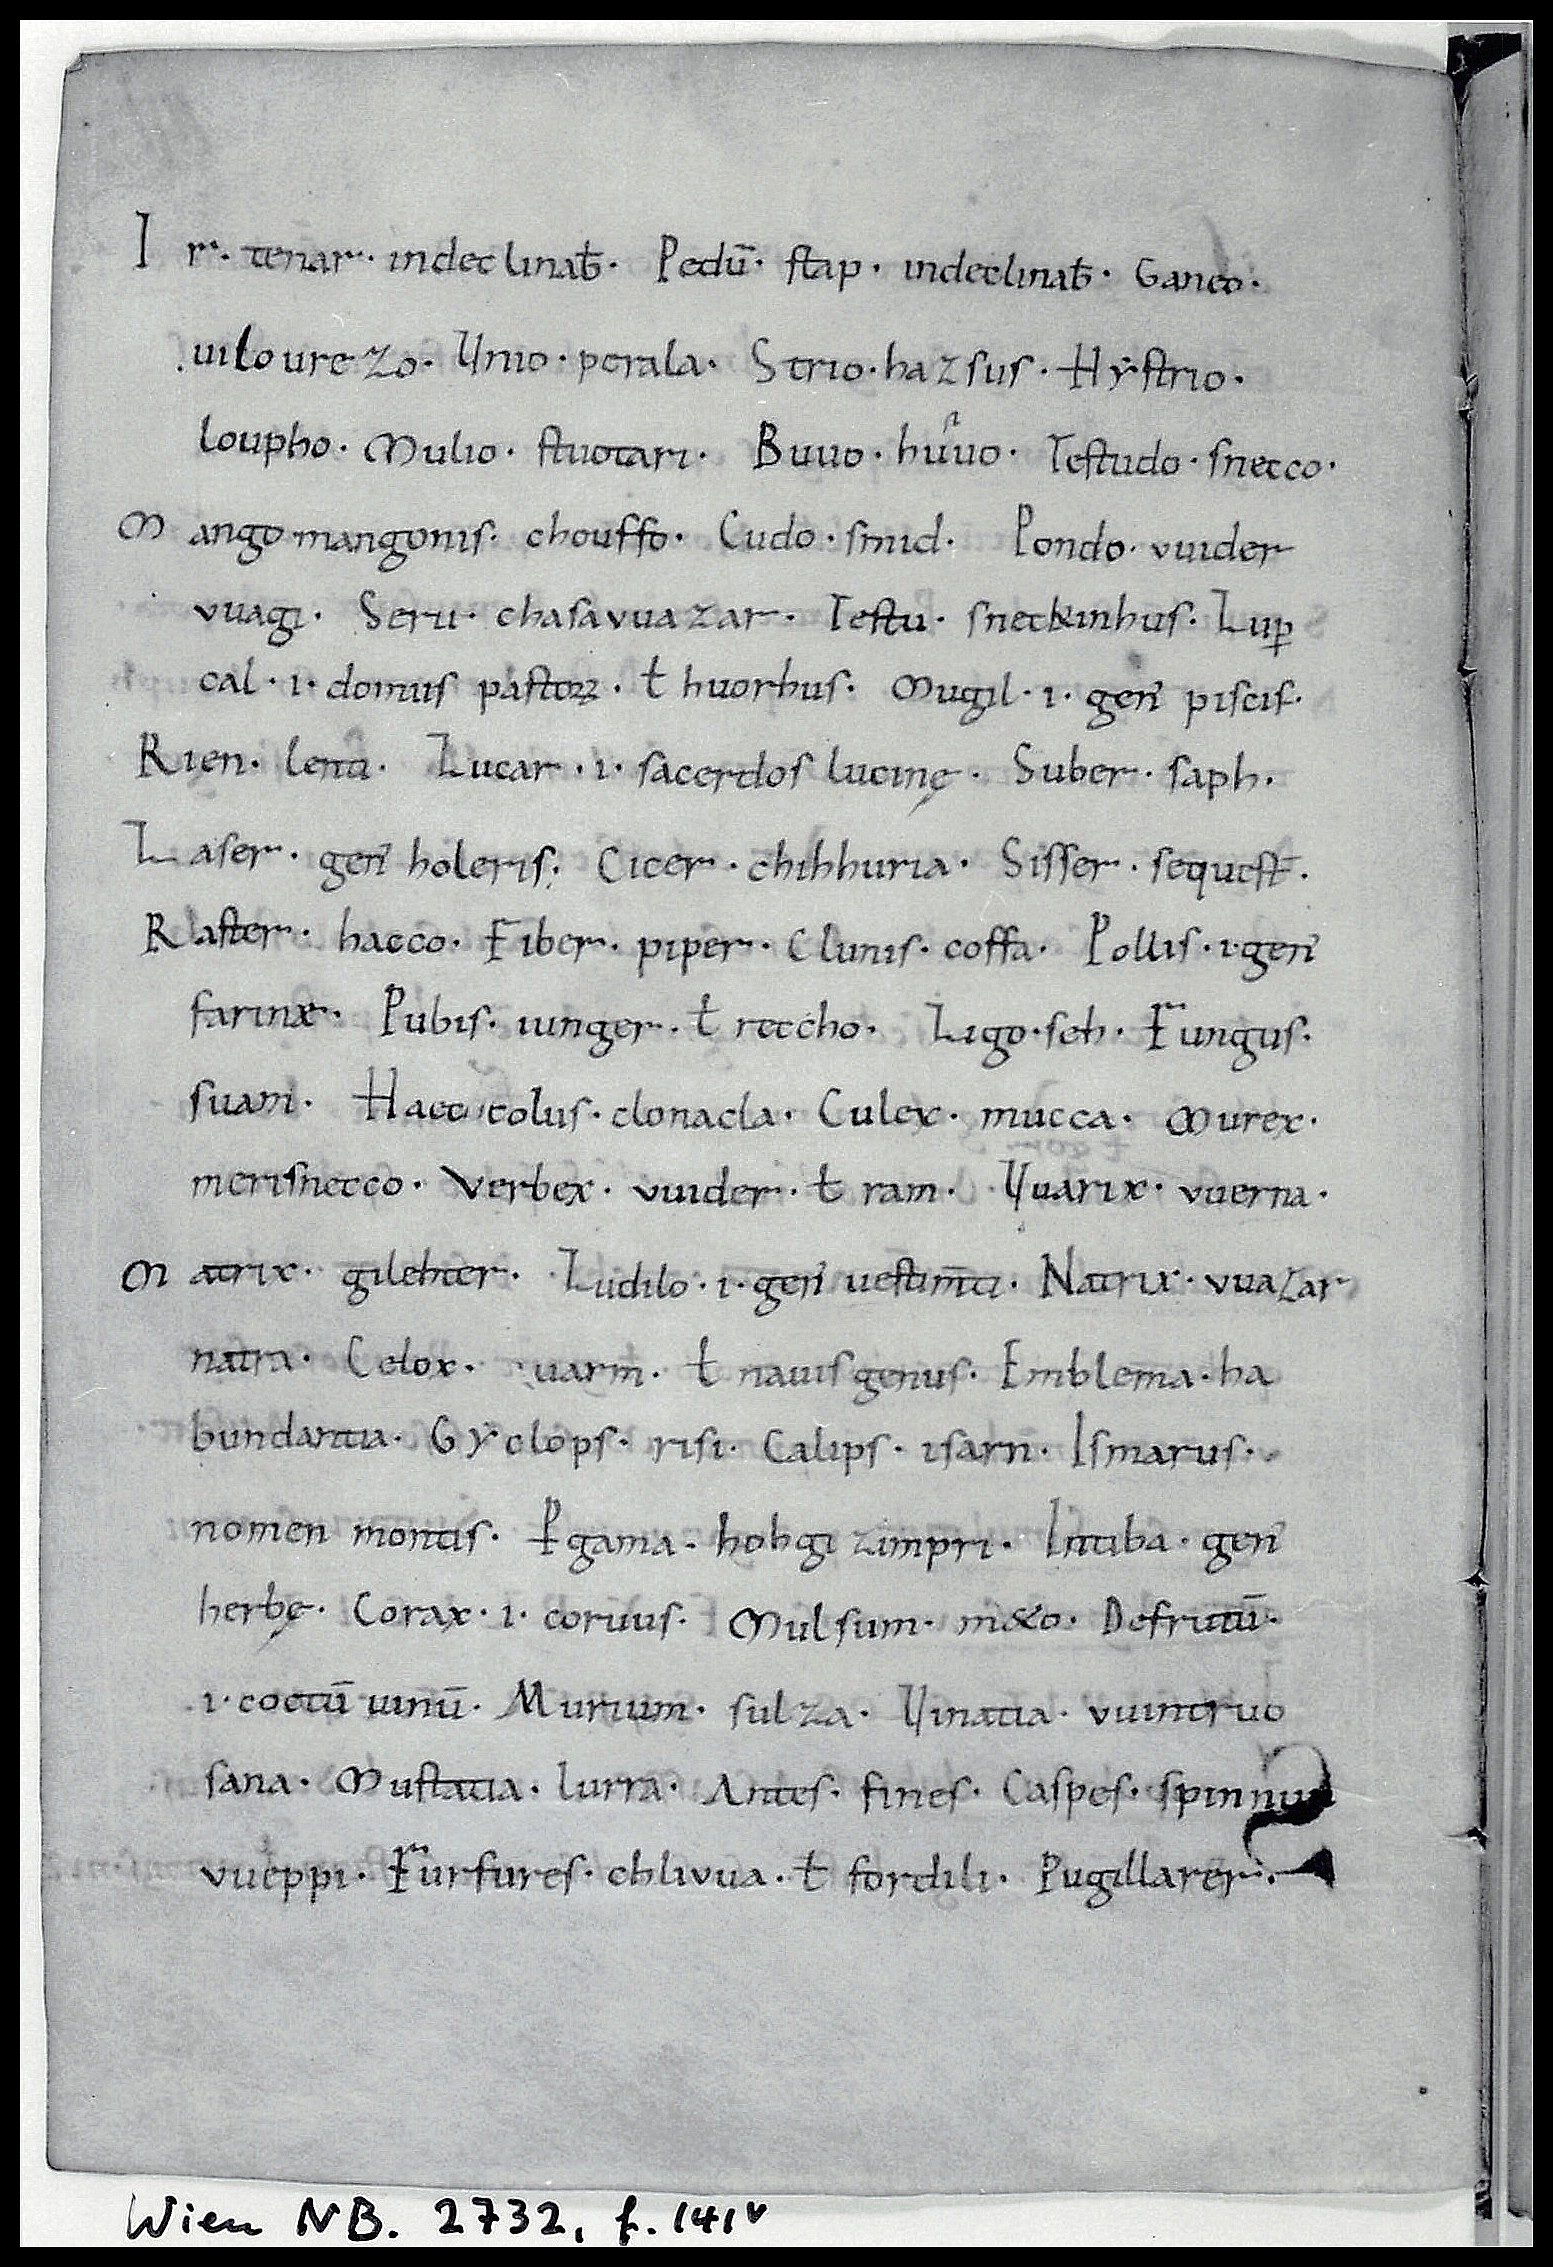 I r · tenar · indeclinaƀ · Pedū · stap · indeclinaƀ · Ganeo ·
uilourezo · Unio · perala · Strio · hazsus · Hẏstrio ·
loupho · Mulio · stuotari · Buuo · huuo · Testudo · snecco ·
M ango · mangonis · chouffo · Cudo · smid · Pondo · vuider
vuagi · Seru · chasavuazar · Testu · sneckinhus · Luꝑ
cal · i · domus pastoꝝ · ł huorhus · Mugil · i · geñ piscis ·
Rien · lenti · Lucar · i · sacerdos lucinę · Suber · saph ·
Laser · geñ holeris · Cicer · chihhuria · Sisser · sequest̄ ·
Raster · hacco · Fiber · piper · Clunis · coffa · Pollis · i · geñ
farinæ · Pubis · iunger · ł reccho · Ligo · seh · Fungus ·
suam · Haec colus · clonacla · Culex · mucca · Murex ·
merisnecco · Verbex · vuider · ł ram · Uuarix · vuerna ·
M atrix · gilehter · Ludilo · i · geñ uestim̄ti · Natrix · vuazar
natra · Celox · uarm · ł nauis genus · Emblema · ha
bundantia · Cẏclops · risi · Calips · isarn · Ismarus ·
nomen montis · Ꝑgama · hohgizimpri · Intiba · geñ
herbę · Corax · i · coruus · Mulsum · m&o · Defrutū ·
i · coctū uinū · Murium · sulza · Uinatia · vuintruo
sana · Mustatia · lurra · Antes · fines · Caspes · spinnun
vueppi · Furfures · chlivua · ł fordili · Pugillarer ·
Wien NB. 2732, f. 141ᵛ